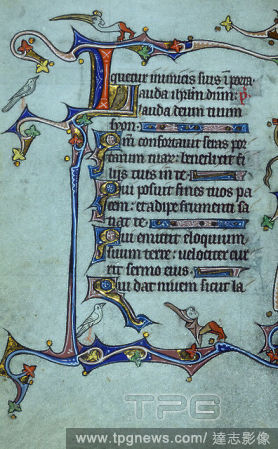 quetur inimicis suis in porta
auda ihrlm dnm: p
lauda deum tuum
syon.
Qm confortavit seras por
tarum tuar: benedixit fi
lijs tuis in te.
Qui posuit fines tuos pa
cem: et adipe frumenti sa
tiat te
Qui emittit eloquium
suum terre: velociter cur
rit sermo eius.
Qui dat nivem sicut la
TPG
www.tpgnews.com/ 達志影像